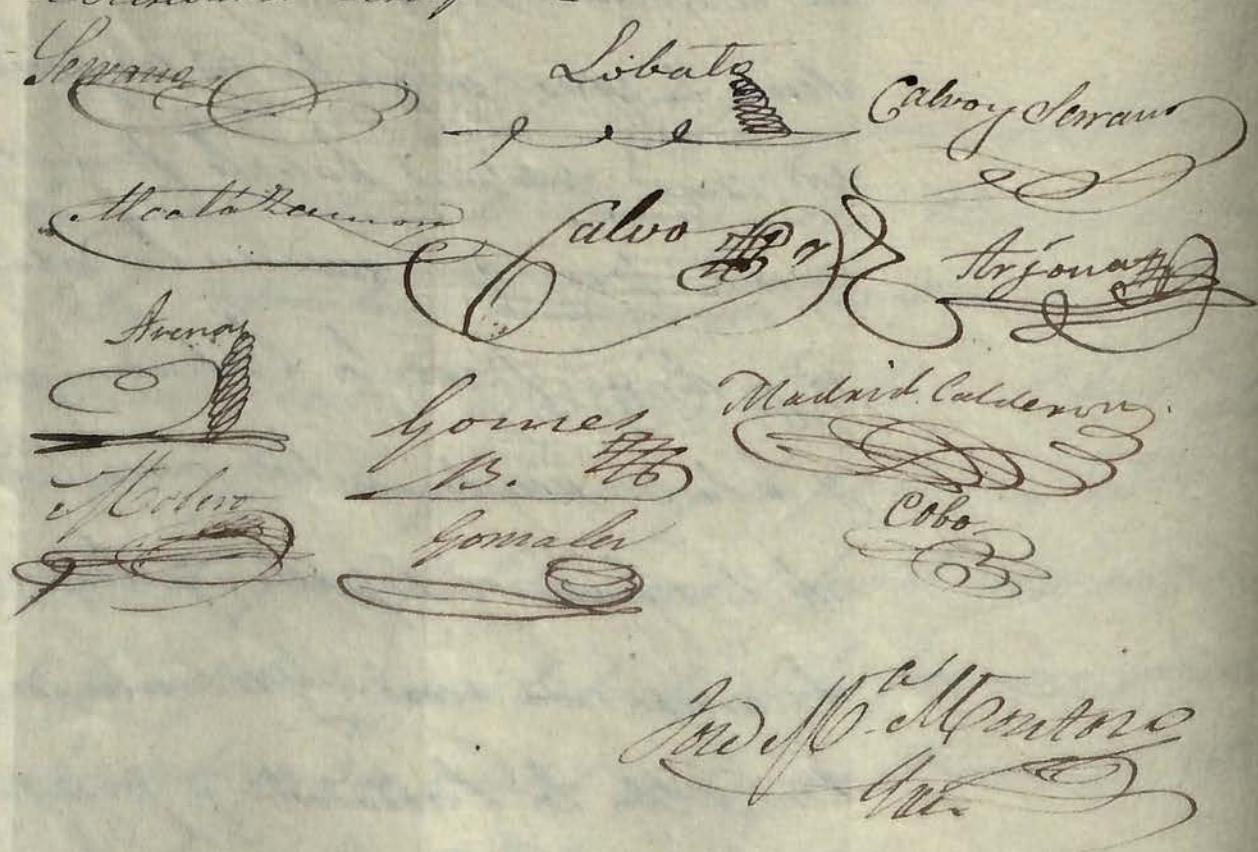 Serrano
Lobato
Calvo y Serrano
Alcalá Zamora
Calvo
Arjona
Arenas
Gomez
B.
Madrid Calderon
Molero
Gonzalez
Cobo
José Mª Montoro